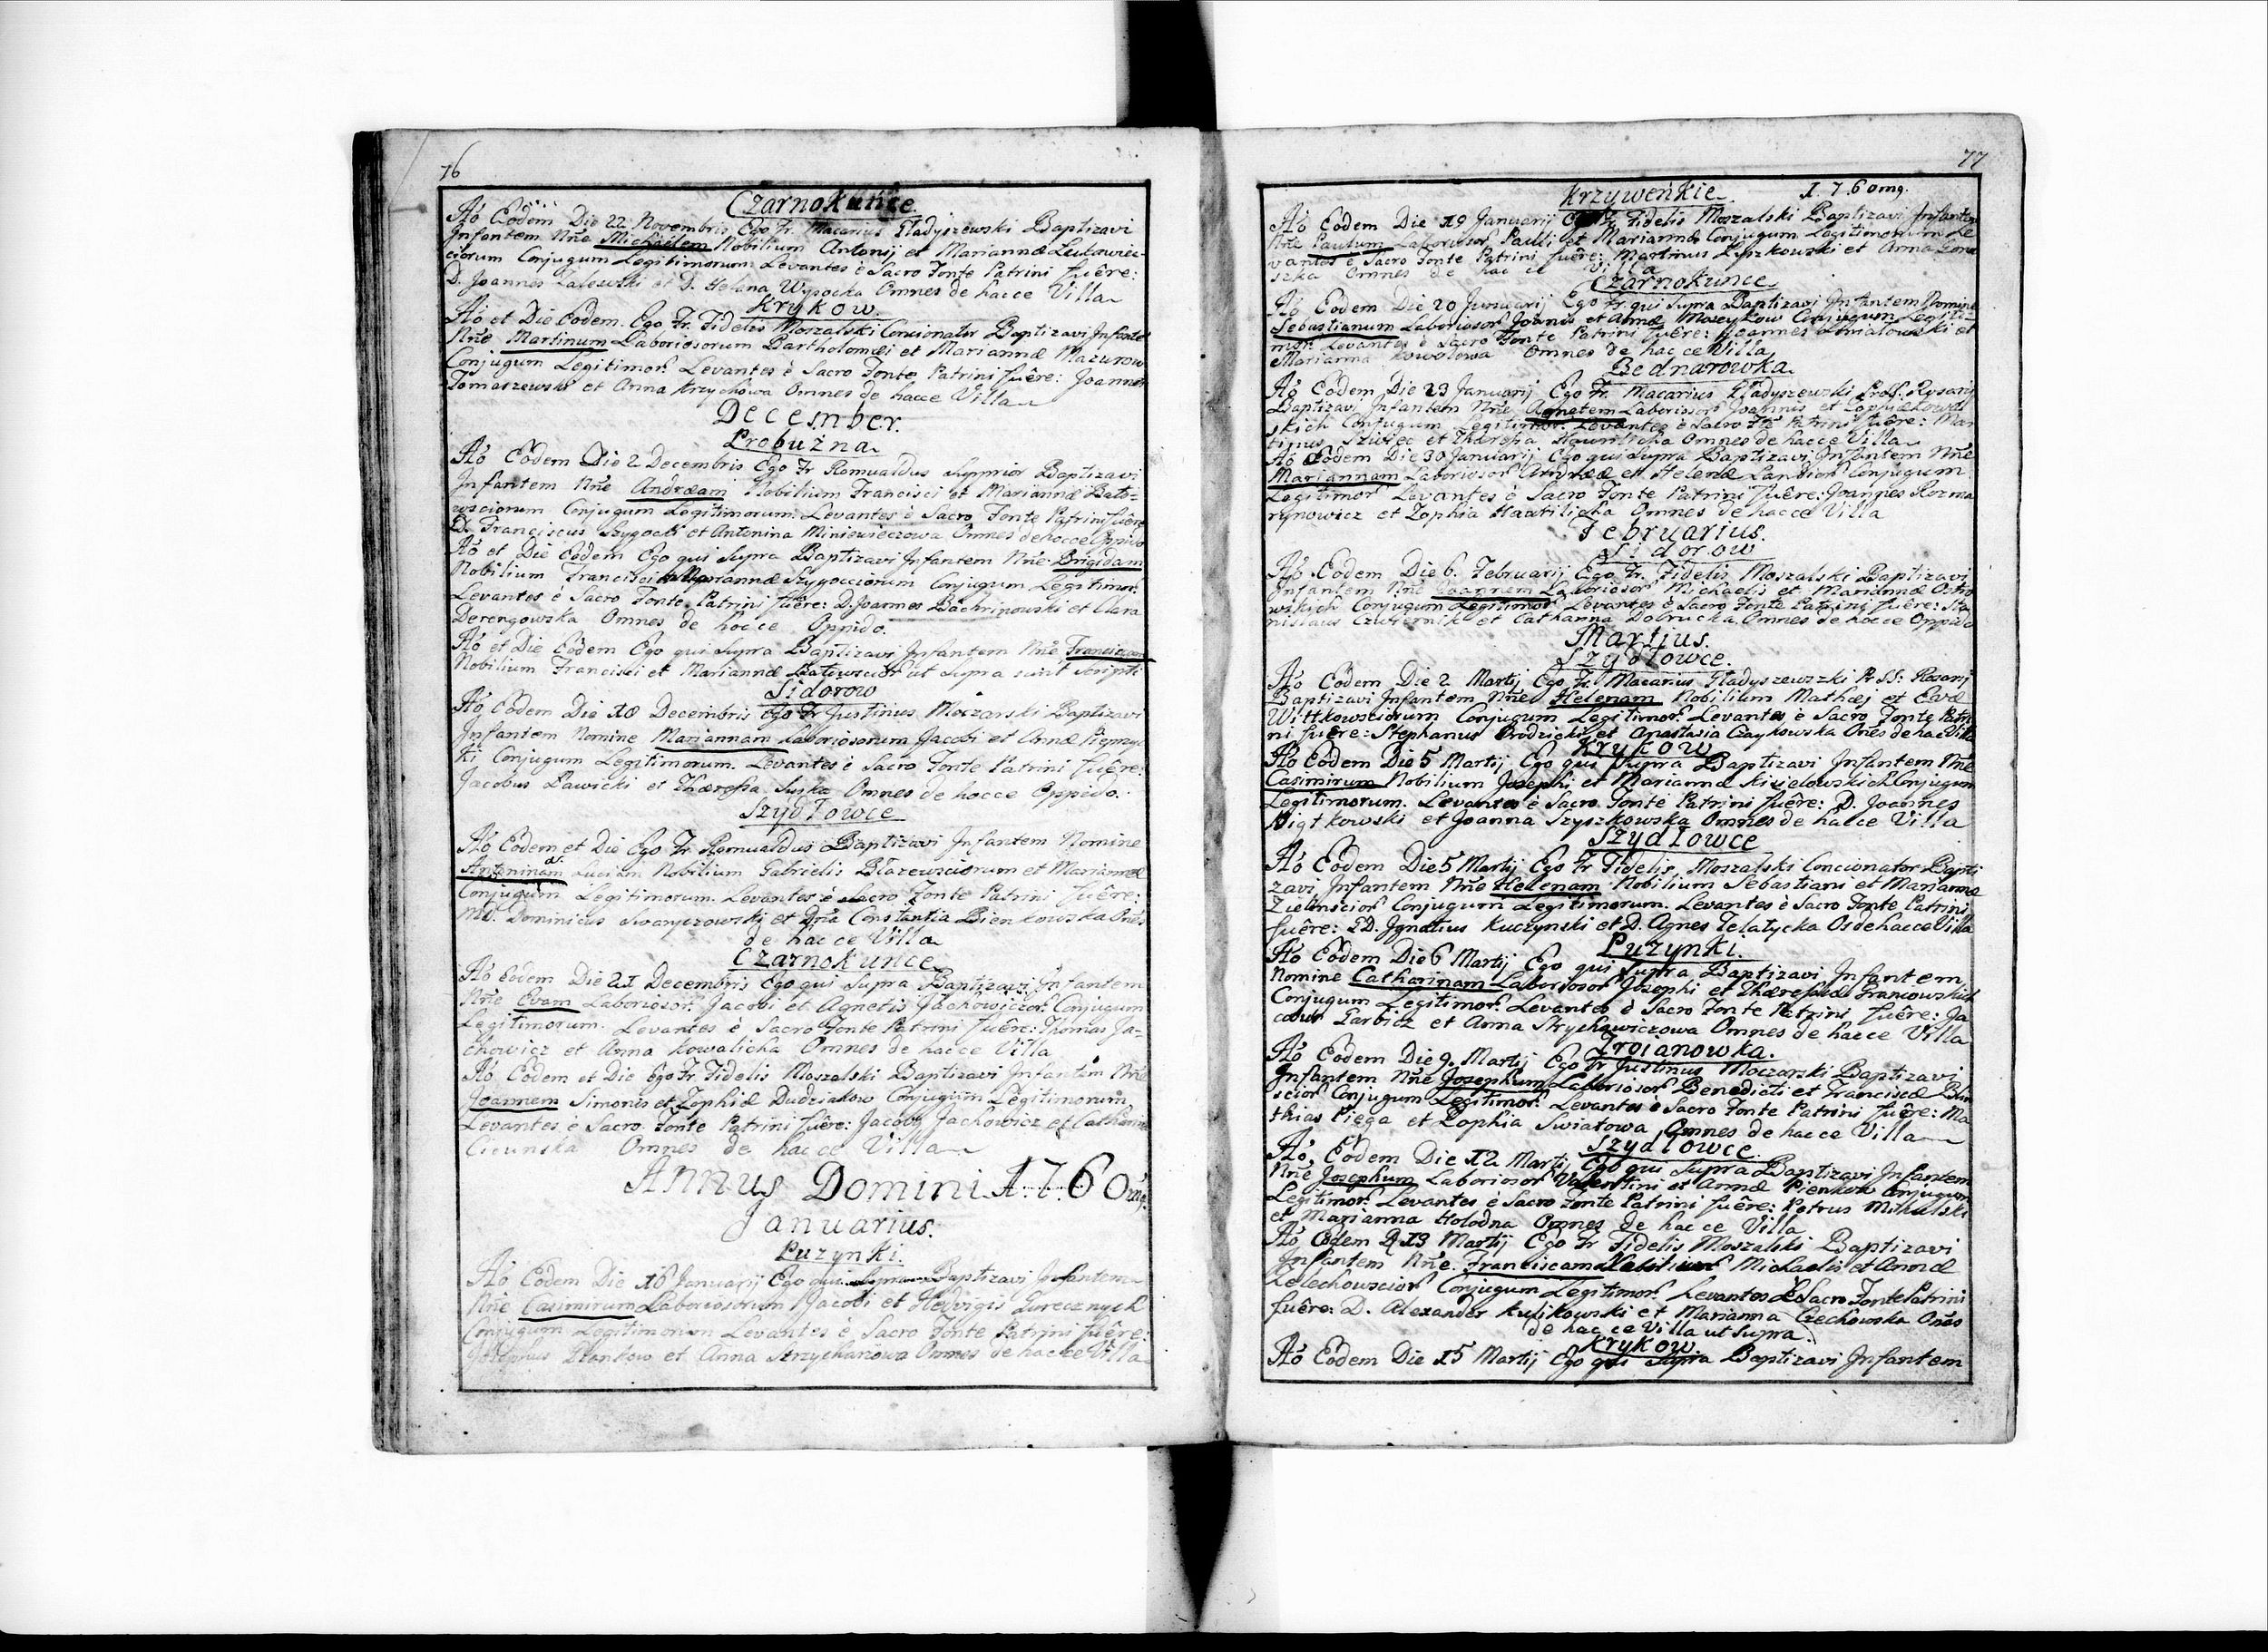 76
Czarnokunce.
Aō Eodem Die 22 Novembris Ego Fr. Macarius Gładyszewski Baptizavi
Infantem Nñe Michaelem Nobilium Antonij et Mariannæ
ciorum Conjugum Legitimorum. Levantes è Sacro Fonte Patrini fuêre:
D. Joannes Zalewski et D. Helena Wysocka Omnes de hacce Villa
Krykow.
Aō et Die Eodem. Ego Fr. Fidelis Moszalski Concionator Baptizavi Infantē
Nñe Martinum Laboriosorum Bartholomæi et Mariannæ Mazurow
Conjugum Legitimor. Levantes è Sacro Fonte Patrini fuêre: Joannes
Tomaszewski et Anna Krzychowa Omnes de hacce Villa
December.
Probużna.
Aō Eodem Die 2 Decembris Ego Fr Romualdus Supprior Baptizavi
Infantem Nñe Andræam Nobilium Francisci et Mariannæ Bato=
wsciorum Conjugum Legitimorum. Levantes è Sacro Fonte Patrini fuêre
D. Franciscus Szygocki et Antonina Miniewiczowa Omnes de hocce Oppido
Aō et Die Eodem Ego qui Supra Baptizavi Infantem Nñe Brigidam
Nobilium Francisci et Mariannæ Szygocciorum Conjugum Legitimor.
Levantes è Sacro Fonte Patrini fuêre: D. Joannes Bachrinowski et Clara
Derengowska Omnes de hocce Oppido.
Aō et Die Eodem Ego qui Supra Baptizavi Infantem Nñe Franciscam
Nobilium Francisci et Mariannæ Batowscior ut Supra sunt Scripti
Sidorow
Aō Eodem Die 18 Decembris Ego Fr Justinus Moczarski Baptizavi
Infantem Nomine Mariannam Laboriosorum Jacobi et Annæ
ki Conjugum Legitimorum. Levantes è Sacro Fonte Patrini fuêre:
Jacobus Ławicki et Theresia Suska Omnes de hocce Oppido.
Szydłowce
Aō Eodem et Die Ego Fr Romualdus Baptizavi Infantem Nomine
Antoninam Luciam Nobilium Gabrielis Błazewsciorum et Mariannæ
Conjugum Legitimorum. Levantes è Sacro Fonte Patrini fuêre:
Dominicus et Dña Constantia Bienkowska Oñes
de hacce Villa
Czarnokunce
Aō Eodem Die 21 Decembris Ego qui Supra Baptizavi Infantem
Nñe Evam Laboriosor. Jacobi et Agnetis Jachowiczor. Conjugum
Legitimorum. Levantes è Sacro Fonte Patrini fuêre: Thomas Ja=
chowicz et Anna Kowalicha Omnes de hacce Villa
Aō Eodem et Die Ego Fr Fidelis Moszalski Baptizavi Infantem Nñe
Joannem Simonis et Zophiæ Dudziakow Conjugum Legitimorum
Levantes è Sacro Fonte Patrini fuêre: Jacobus Jachowicz et Catharina
Omnes de hacce Villa
Annus Domini 1.7.6 0mg.
Januarius.
Puzynki.
Aō Eodem Die 16 Januarij Ego qui Supra Baptizavi Infantem
Nñe Casimirum Laboriosorum Jacobi et Hedvigis Gurecznych
Conjugum Legitimorum Levantes è Sacro Fonte Patrini fuêre:
Josephus et Anna Omnes de hacce Villa
77
Krzyweńkie. 1.7.60mg.
Aō Eodem Die 19 Januarij Ego Fr Fidelis Moszalski Baptizavi Infantem
Nñe Paulum Laboriosor Pauli et Mariannæ Conjugum Legitimorum Le
vantes è Sacro Fonte Patrini fuêre: Martinus Łyszkowski et Anna
szka Omnes de hacce Villa
Czarnokunce
Aō Eodem Die 20 Januarij Ego Fr. qui Supra Baptizavi Infantem Nomine
Sebastianum Laboriosor Joannis et Annæ Conjugum Legiti=
mor. Levantes è Sacro Fonte Patrini fuêre: Joannes et
Marianna Kowolowa Omnes de hacce Villa
Bednarowka.
Aō Eodem Die 23 Januarij Ego Fr. Macarius Gładyszewski Rosarij
Baptizavi Infantem Nñe Agnetem Laboriosor Joannis et Zophiæ
skich Conjugum Legitimor. Levantes è Sacro Fte Patrini fuêre: Mar
tinus et Theresia Omnes de hacce Villa
Aō Eodem Die 30 Januarij Ego qui Supra Baptizavi Infantem Nñe
Mariannam Laboriosor Andreæ et Helenæ Conjugum
Legitimor Levantes è Sacro Fonte Patrini fuêre: Joannes Rozma
rynowicz et Zophia Omnes de hacce Villa
Februarius.
Sidorow
Aō Eodem Die 6. Februarij Ego Fr. Fidelis Moszalski Baptizavi
Infantem Nñe Joannem Laboriosor Michaelis et Mariannæ Ostro
wskich Conjugum Legitimor Levantes è Sacro Fonte Patrini fuêre: Sta
nislaus et Catharina Dobrucka Omnes de hocce Oppido
Martius.
Szydłowce.
Aō Eodem Die 2 Martij Ego Fr. Macarius Gładyszewszki Pr SS: Rosarij
Baptizavi Infantem Nñe Helenam Nobilium Mathæj et Evæ
Wittkowsciorum Conjugum Legitimor. Levantes è Sacro Fonte Patri
ni fuêre: Stephanus Brodzicki et Anastasia Czaykowska Oñes de hac Villa
Krykow
Aō Eodem Die 5 Martij Ego qui Supra Baptizavi Infantem Nñe
Casimirum Nobilium Josephi et Mariannæ Kisielowskich Conjugum
Legitimorum. Levantes è Sacro Fonte Patrini fuêre: D. Joannes
Piątkowski et Joanna Szyszkowska Omnes de hacce Villa
Szydłowce
Aō Eodem Die 5 Martij Ego Fr Fidelis Moszalski Concionator Bapti
zavi Infantem Nñe Helenam Nobilium Sebastiani et Mariannæ
Zielinscior Conjugum Legitimorum. Levantes è Sacro Fonte Patrini
fuêre: D. Ignatius Kuczynski et D. Agnes Telatycka Os de hacce Villa
Puzynki.
Aō Eodem Die 6 Martij Ego qui Supra Baptizavi Infantem
Nomine Catharinam Laboriosor Josephi et Theresiæ Grancowskich
Conjugum Legitimor. Levantes è Sacro Fonte Patrini fuêre: Ja
cobus Garbicz et Anna Strychawiczowa Omnes de hacce Villa
Trojanowka.
Aō Eodem Die 9 Martij Ego Fr Justinus Moczarski Baptizavi
Infantem Nñe Josephum Laboriosor Benedicti et Franciscæ
scior Conjugum Legitimor. Levantes è Sacro Fonte Patrini fuêre: Ma
thias Pięga et Zophia Swiatowa Omnes de hacce Villa
Szydłowce.
Aō Eodem Die 12 Martij Ego qui Supra Baptizavi Infantem
Nñe Josephum Laboriosor Valentini et Annæ Pienkow Conjugum
Legitimor. Levantes è Sacro Fonte Patrini fuêre: Petrus Mikulski
et Marianna Holodna Omnes de hacce Villa
Aō Eodem D 13 Martij Ego Fr Fidelis Moszalski Baptizavi
Infantem Nñe Franciscam Michaelis et Annæ
Lelechowscior Conjugum Legitimor. Levantes è Sacro Fonte Patrini
fuêre: D. Alexander Kulikowski et Marianna Czechowska Oñes
de hacce Villa ut Supra.
Krykow.
Aō Eodem Die 15 Martij Ego qui Supra Baptizavi Infantem